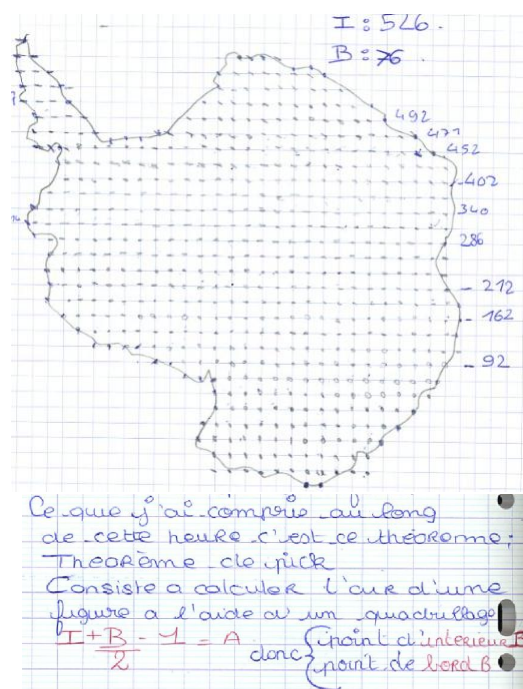 I : 526.
B : 76.
492
471
452
402
340
286
212
162
92
Ce que j'ai compris au long
de cette heure c'est ce théorème;
Théorème de pick
Consiste a calculer l'aire d'une
figure a l'aide d'un quadrillage
I + B/2 - 1 = A
donc { point d'interieur
point de bord B